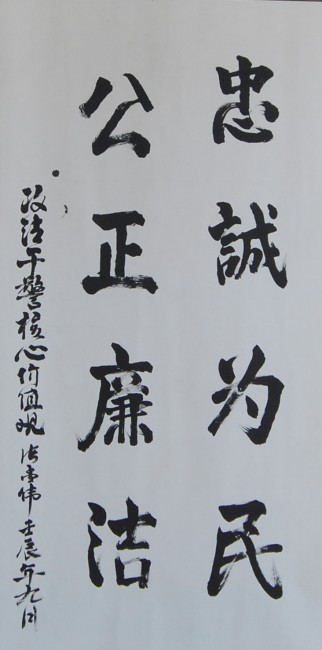 忠誠为民
公正廉洁
政法干警核心价值观 壬辰年九月